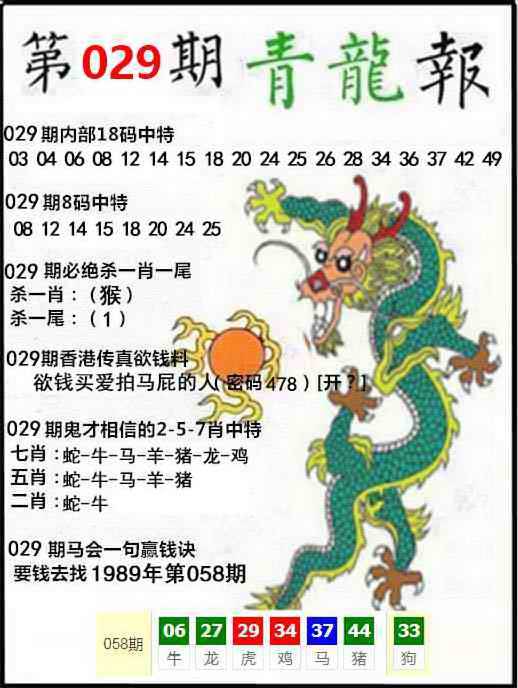 第029期青龍報
029期内部18码中特
03 04 06 08 12 14 15 18 20 24 25 26 28 34 36 37 42 49
029期8码中特
08 12 14 15 18 20 24 25
029 期必绝杀一肖一尾
杀一肖：（猴）
杀一尾：（1）
029期香港传真欲钱料
欲钱买爱拍马屁的人(密码478）[开？]
029期鬼才相信的2-5-7肖中特
七肖：蛇-牛-马-羊-猪-龙-鸡
五肖：蛇-牛-马-羊-猪
二肖：蛇-牛
029 期马会一句赢钱诀
要钱去找1989年第058期
058期 06 27 29 34 37 44 33
牛 龙 虎 鸡 马 猪 狗